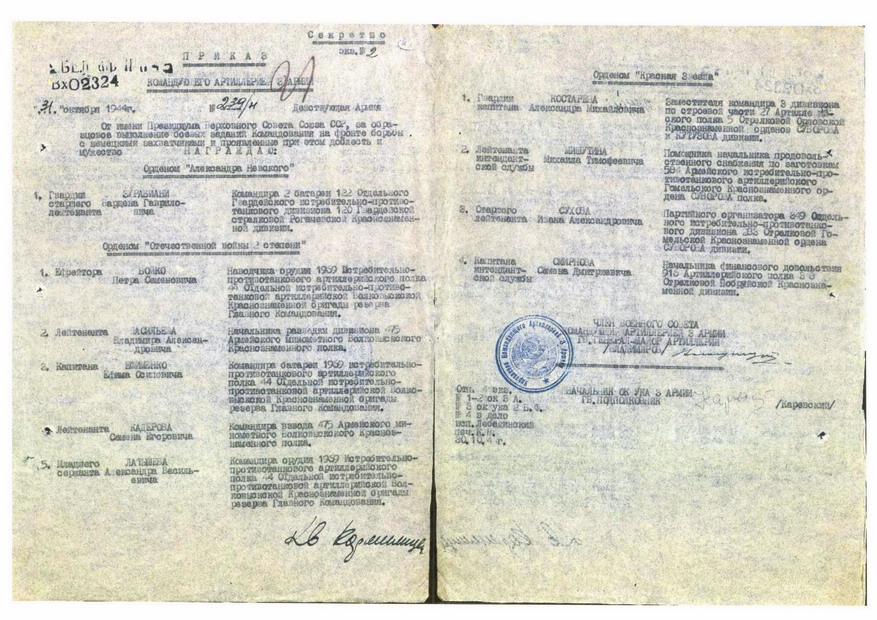 Секретно
экз.№ 2
П Р И К А З
Вх02324
КОМАНДУЮЩЕГО АРТИЛЛЕРИЕЙ 3 АРМИИ
"31" октября 1944г. № 239/н Действующая Армия
От имени Президиума Верховного Совета Союза ССР, за образцовое
выполнение боевых заданий Командования на фронте борьбы
с немецкими захватчиками и проявленные при этом доблесть и
мужество НАГРАЖДАЮ:
Орденом "Александра Невского"
1. Гвардии
старшего Вардена Гаврило-
лейтенанта вича
Командира 2 батареи 122 Отдельного
Гвардейского истребительно-противо-
танкового дивизиона 120 Гвардейской
стрелковой Рогачевской Краснознамен-
ной дивизии.
Орденом "Отечественной войны 2 степени"
1. Ефрейтора БОЙКО
Петра Семеновича
Наводчика орудия 1959 Истребительно-
противотанкового артиллерийского полка
44 Отдельной истребительно-противо-
танковой артиллерийской Волковысской
Краснознаменной бригады резерва
Главного Командования.
2. Лейтенанта ВАСИЛЬЕВА
Владимира Алексан-
дровича
Начальника разведки дивизиона 475
Армейского Минометного Волковысского
Краснознаменного полка.
3. Капитана
Ефима Осиповича
Командира батареи 1959 истребительно-
противотанкового артиллерийского
полка 44 Отдельной истребительно-
противотанковой артиллерийской Волко-
высской Краснознаменной бригады
резерва Главного Командования.
Лейтенанта КАДЕРОВА
Семена Егоровича
Командира взвода 475 Армейского ми-
нометного Волковысского Краснозна-
менного полка.
5. Младшего ЛАТЫШЕВА
сержанта Александра Василь-
евича
Командира орудия 1959 Истребительно-
противотанкового артиллерийского
полка 44 Отдельной истребительно-
противотанковой артиллерийской Вол-
ковысской Краснознаменной бригады
резерва Главного Командования.
Орденом "Красная Звезда"
1. Гвардии КОСТАРЕВА
капитана Александра Михайловича
Заместителя командира 3 дивизиона
по строевой части 27 Артиллерий-
ского полка 5 Стрелковой Орловской
Краснознаменной орденов СУВОРОВА
и КУТУЗОВА дивизии.
2. Лейтенанта МИШУТИНА
интендант- Михаила Тимофеевича
ской службы
Помощника начальника продоволь-
ственного снабжения по заготовкам
584 Армейского истребительно-про-
тивотанкового артиллерийского
Гомельского Краснознаменного ор-
дена СУВОРОВА полка.
3. Старшего СУХОВА
лейтенанта Ивана Александровича
Партийного организатора Отдель-
ного истребительно-противотанко-
вого дивизиона 283 Стрелковой Го-
мельской Краснознаменной ордена
СУВОРОВА дивизии.
4. Капитана СМИРНОВА
интендант- Семена Дмитриевича
ской службы
Начальника финансового довольствия
Артиллерийского полка
Стрелковой Бобруйской Краснозна-
менной дивизии.
ЧЛЕН ВОЕННОГО СОВЕТА
КОМАНДУЮЩИЙ АРТИЛЛЕРИЕЙ 3 АРМИИ
ГВ.ГЕНЕРАЛ-МАЙОР АРТИЛЛЕРИИ
НАЧАЛЬНИК ОК УКА 3 АРМИИ
ГВ.ПОДПОЛКОВНИК /Каревский/
Отп. 4 экз.
№ 1-2 ОК 3 А.
№ 4 в дело
30.10.44 г.